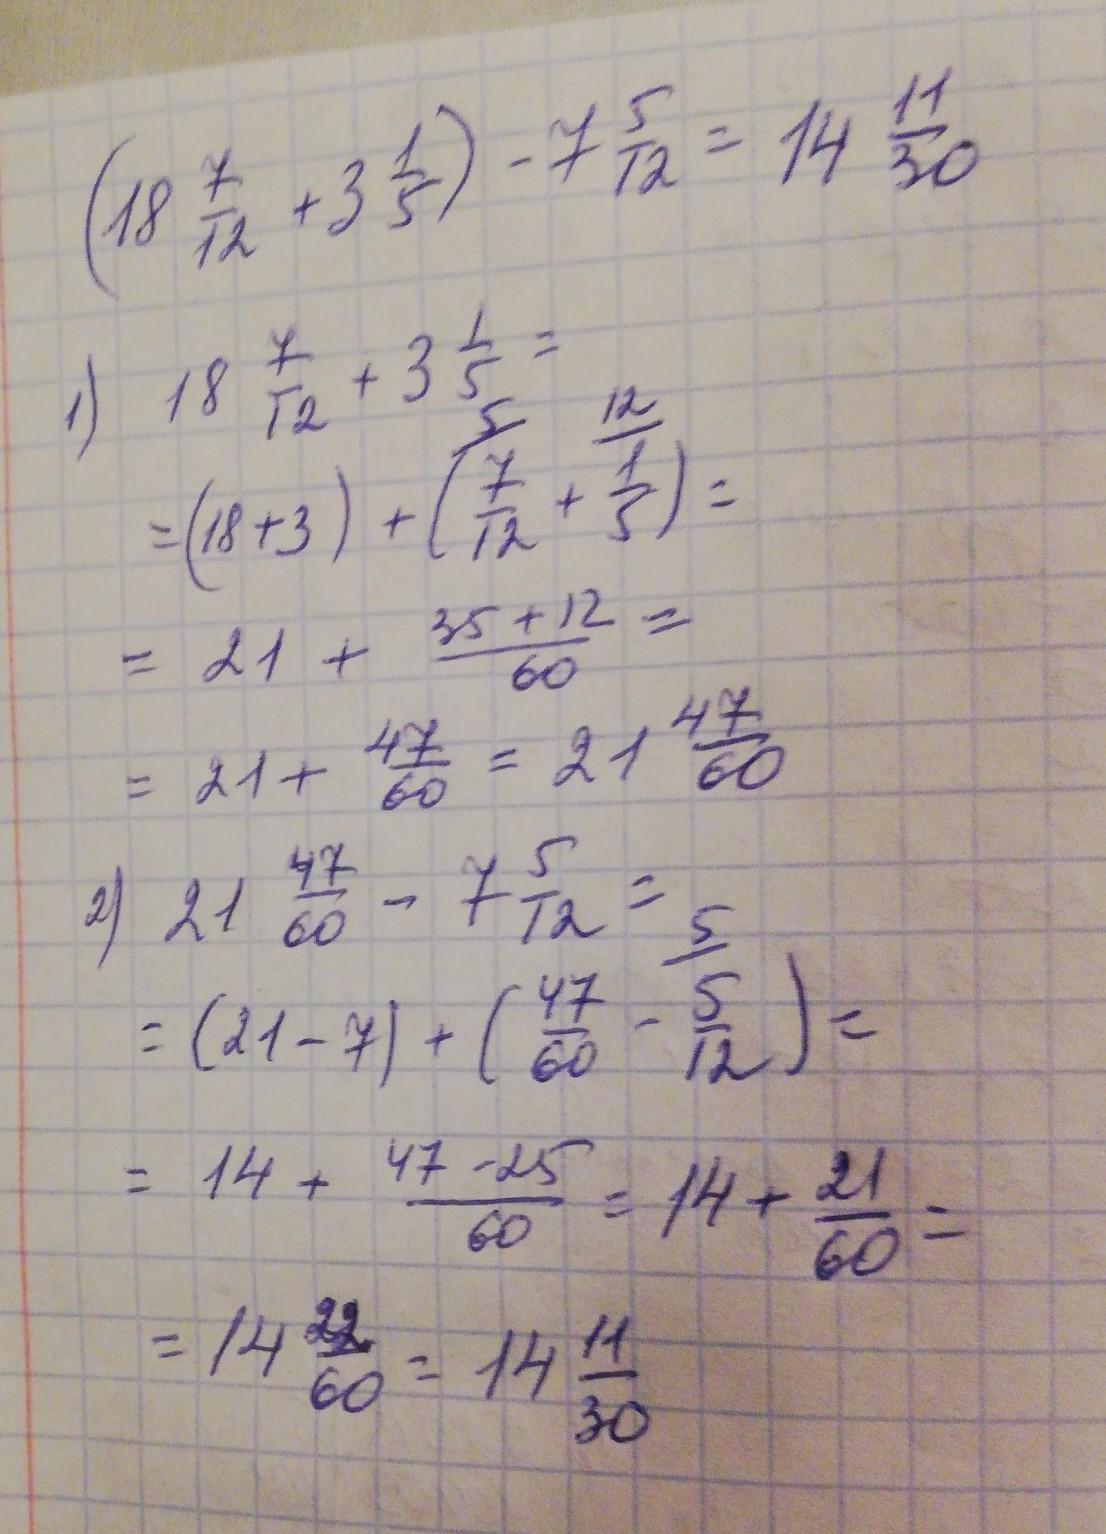 (18 7/12 + 3 1/5) - 7 5/12 = 14 11/30
1) 18 7/12 + 3 1/5 =
= (18+3) + (7/12 + 1/5) = 5 12
= 21 + (35+12)/60 =
= 21 + 47/60 = 21 47/60
2) 21 47/60 - 7 5/12 =
= (21-7) + (47/60 - 5/12) = 5
= 14 + (47-25)/60 = 14 + 21/60 =
= 14 22/60 = 14 11/30